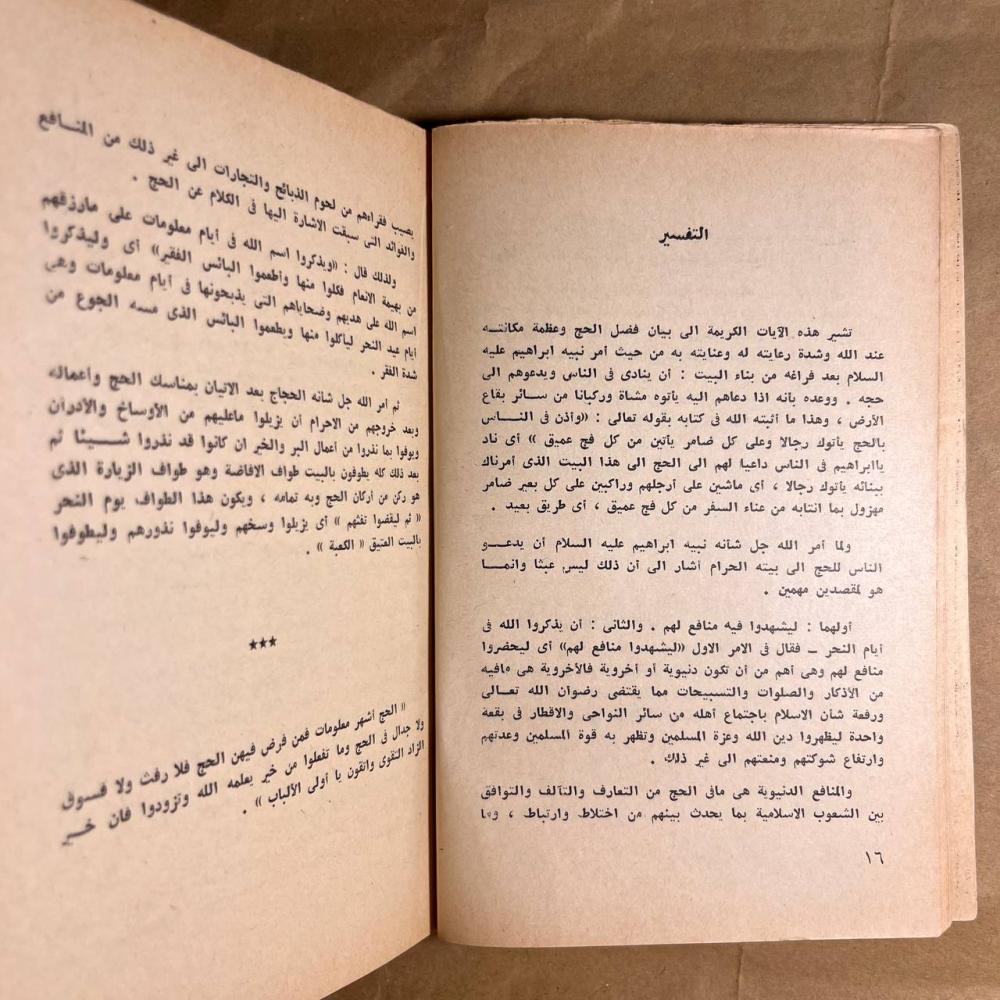 التفسير
تشير هذه الآيات الكريمة الى بيان فضل الحج وعظمة مكانتـــه
عند الله وشدة رعايته له وعنايته به من حيث أمر نبيه ابراهيم عليه
السلام بعد فراغه من بناء البيت : أن ينادى فى الناس ويدعوهم الى
حجه . ووعده بانه اذا دعاهم اليه يأتوه مشاة وركبانا من سـائر بقاع
الأرض ، وهذا ما أثبته الله فى كتابه بقوله تعالى : «وأذن فى النـــاس
بالحج يأتوك رجالا وعلى كل ضامر يأتين من كل فج عميق » أى ناد
ياابراهيم فى الناس داعيا لهم الى الحج الى هذا البيت الذى أمرناك
ببنائه يأتوك رجالا ، أى ماشين على أرجلهم وراكبين على كل بعير ضامر
مهزول بما انتابه من عناء السفر من كل فج عميق ، أى طريق بعيد .
ولما أمر الله جل شأنه نبيه ابراهيم عليه السلام أن يدعــو
الناس للحج الى بيته الحرام أشار الى أن ذلك ليس عبثا وانمــا
هو لمقصدين مهمين .
أولهما : ليشهدوا فيه منافع لهم . والثانى : أن يذكروا الله فى
أيام النحر ــ فقال فى الامر الاول «ليشهدوا منافع لهم» أى ليحضروا
منافع لهم وهى أهم من أن تكون دنيوية أو أخروية فالأخروية هى مافيه
من الأذكار والصلوات والتسبيحات مما يقتضى رضوان الله تعالى
ورفعة شأن الاسلام باجتماع أهله من سائر النواحى والاقطار فى بقعة
واحدة ليظهروا دين الله وعزة المسلمين وتظهر به قوة المسلمين وعدتهم
وارتفاع شوكتهم ومنعتهم الى غير ذلك .
والمنافع الدنيوية هى مافى الحج من التعارف والتآلف والتوافق
بين الشعوب الاسلامية بما يحدث بينهم من اختلاط وارتباط ، وما
١٦
يصيب فقراءهم من لحوم الذبائح والتجارات الى غير ذلك من المنــافع
والفوائد التى سبقت الاشارة اليها فى الكلام عن الحج .
ولذلك قال : «ويذكروا اسم الله فى أيام معلومات على مارزقهم
من بهيمة الانعام فكلوا منها وأطعموا البائس الفقير» أى وليذكروا
اسم الله على هديهم وضحاياهم التى يذبحونها فى أيام معلومات وهى
أيام عيد النحر ليأكلوا منها ويطعموا البائس الذى مسه الجوع من
شدة الفقر .
ثم أمر الله جل شأنه الحجاج بعد الاتيان بمناسك الحج وأعماله
وبعد خروجهم من الاحرام أن يزيلوا ماعليهم من الأوساخ والأدران
ويوفوا بما نذروا من أعمال البر والخير ان كانوا قد نذروا شــيئا ثم
بعد ذلك كله يطوفون بالبيت طواف الافاضة وهو طواف الزيارة الذى
هو ركن من أركان الحج وبه تمامه ، ويكون هذا الطواف يوم النحر
« ثم ليقضوا تفثهم » أى يزيلوا وسخهم وليوفوا نذورهم وليطوفوا
بالبيت العتيق « الكعبة » .
***
« الحج أشهر معلومات فمن فرض فيهن الحج فلا رفث ولا فسوق
ولا جدال فى الحج وما تفعلوا من خير يعلمه الله وتزودوا فان خـــير
الزاد التقوى واتقون يا أولى الألباب » .